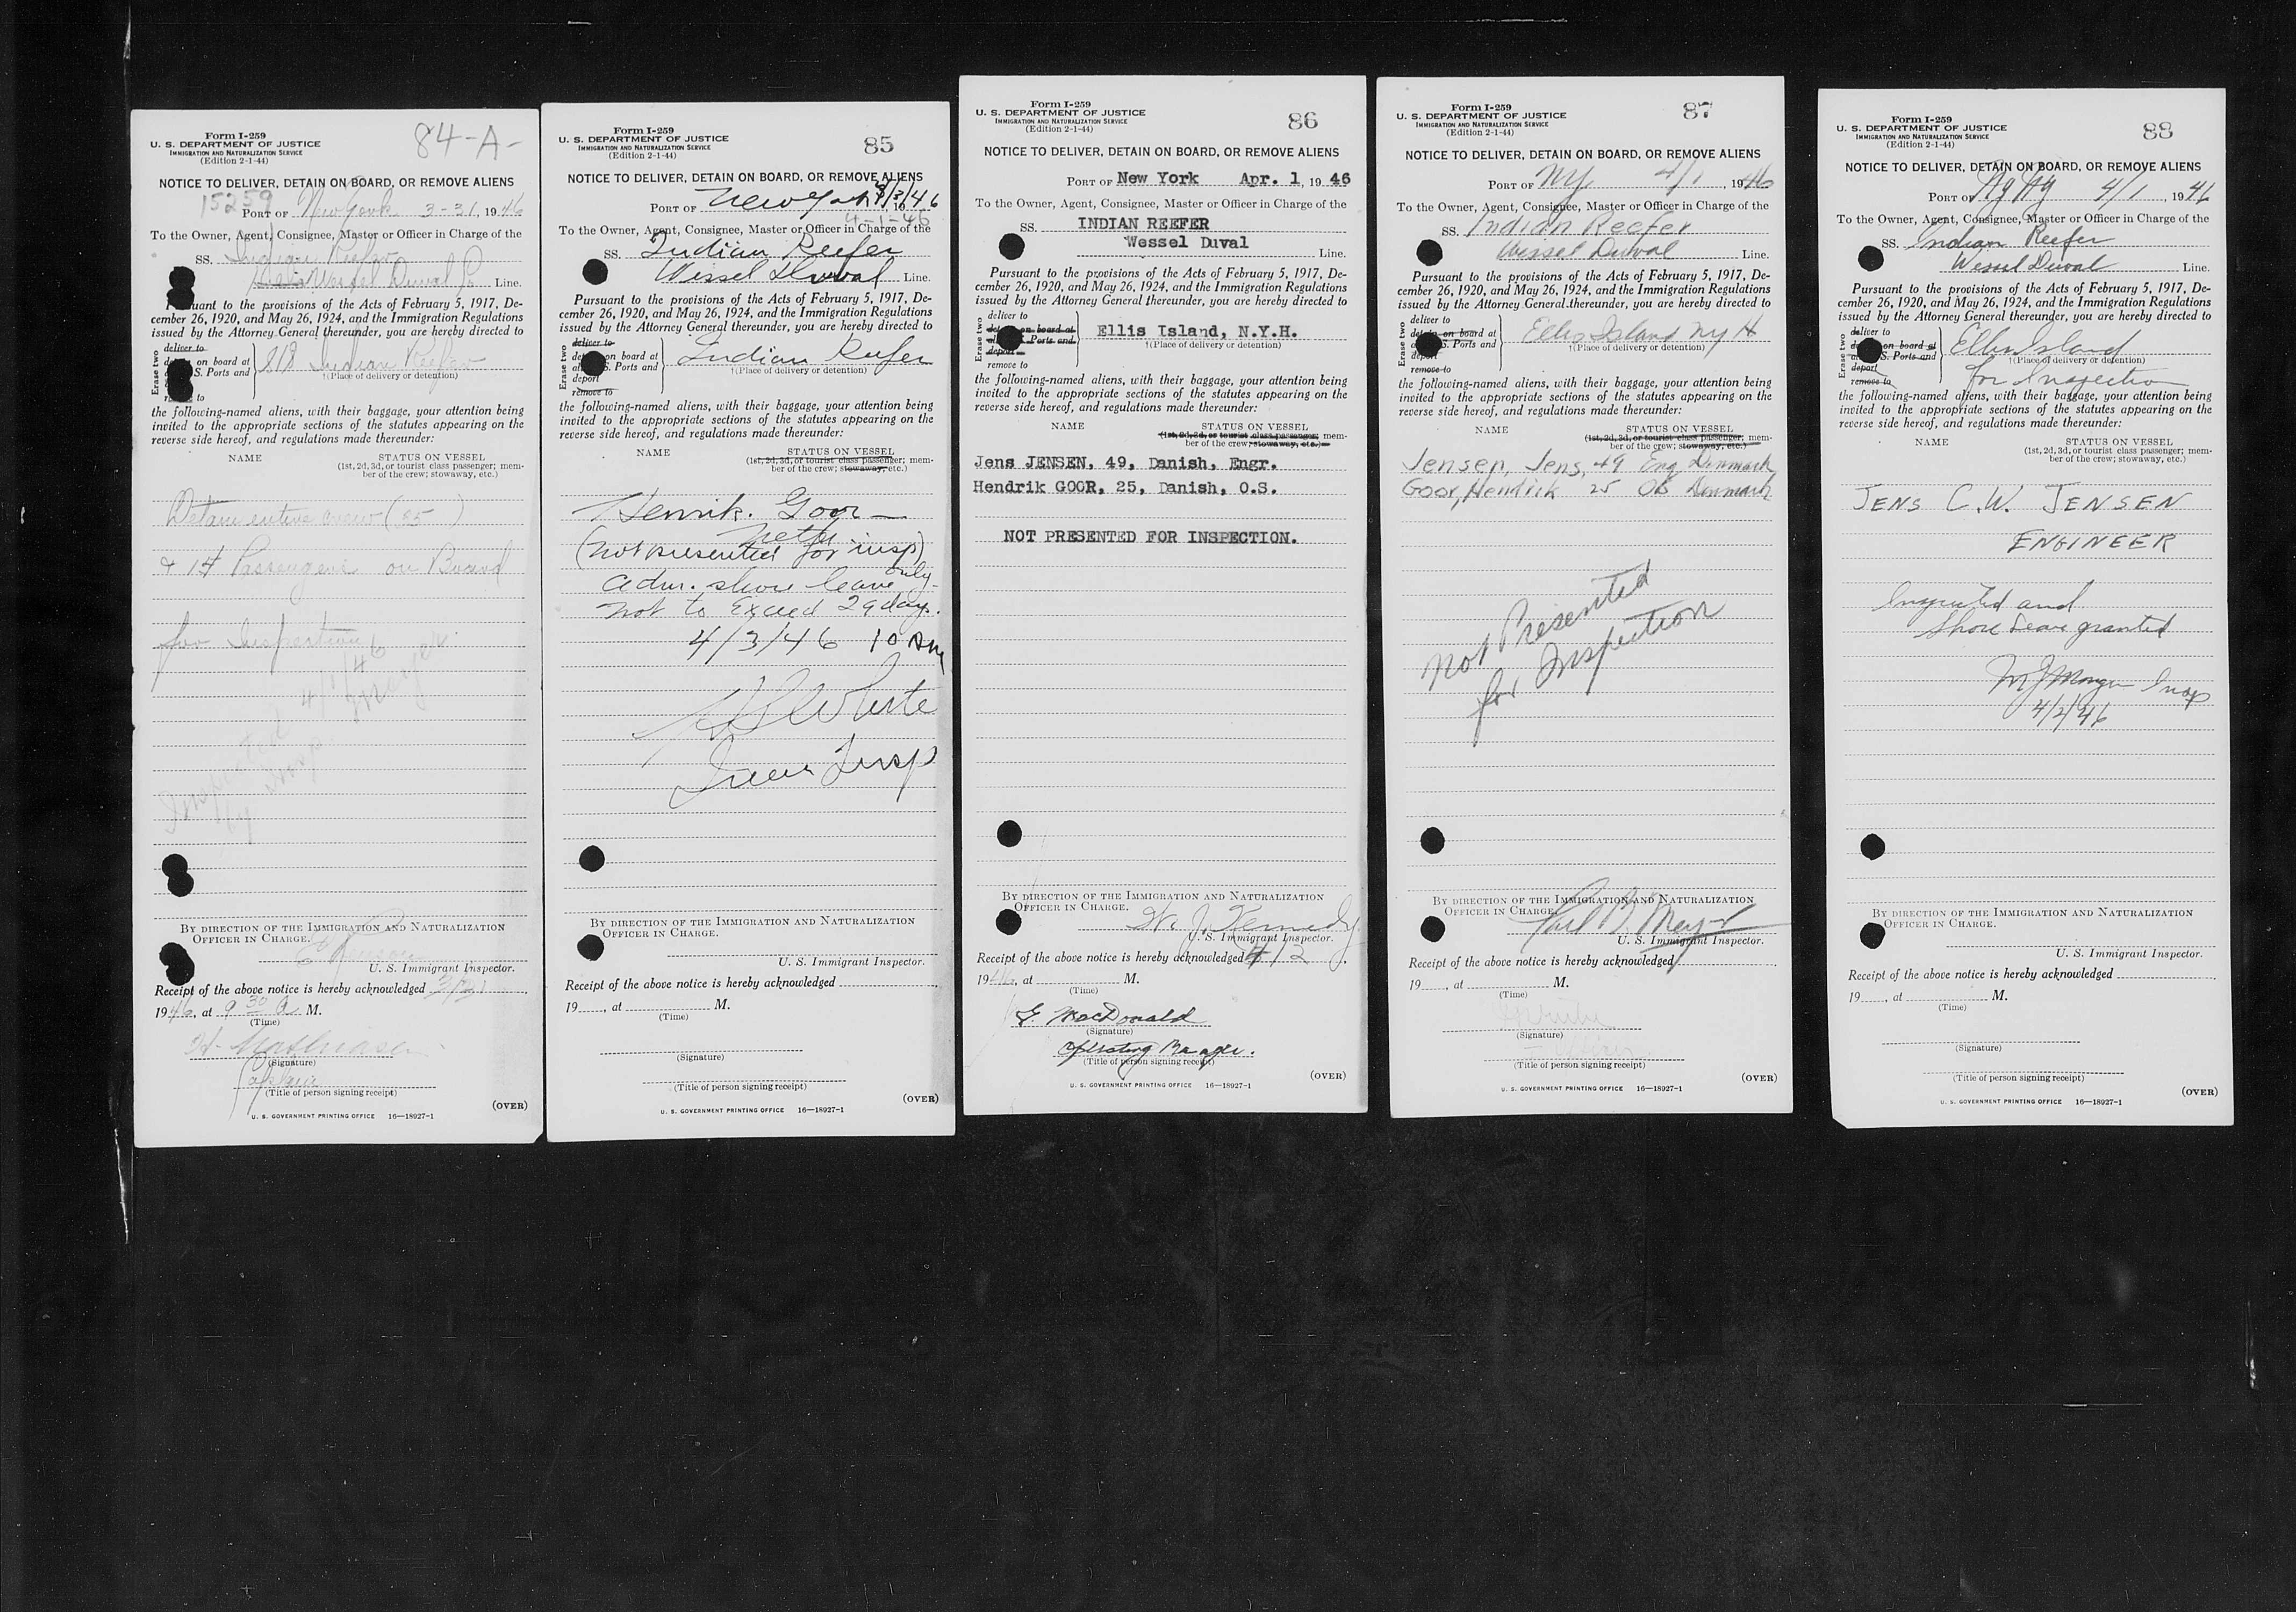 Form I-259
U. S. DEPARTMENT OF JUSTICE
IMMIGRATION AND NATURALIZATION SERVICE
(Edition 2-1-44)
84-A-
NOTICE TO DELIVER, DETAIN ON BOARD, OR REMOVE ALIENS
15259
PORT OF New York 3-31, 1946
To the Owner, Agent, Consignee, Master or Officer in Charge of the
SS. Indian Reefer
Wessel Duval Line.
uant to the provisions of the Acts of February 5, 1917, De-
cember 26, 1920, and May 26, 1924, and the Immigration Regulations
issued by the Attorney General thereunder, you are hereby directed to
Erase two
deliver to
on board at
S. Ports and
to
S/S Indian Reefer
†(Place of delivery or detention)
the following-named aliens, with their baggage, your attention being
invited to the appropriate sections of the statutes appearing on the
reverse side hereof, and regulations made thereunder:
NAME STATUS ON VESSEL
(1st, 2d, 3d, or tourist class passenger; mem-
ber of the crew; stowaway, etc.)
Detain entire crew (35)
& 14 Passengers on Board
for Inspection
Inspected 4/1/46
by Insp
BY DIRECTION OF THE IMMIGRATION AND NATURALIZATION
OFFICER IN CHARGE.
U. S. Immigrant Inspector.
Receipt of the above notice is hereby acknowledged 3/31
1946, at 9 30 a M.
(Time)
H. Mathiasen
(Signature)
Captain
(Title of person signing receipt)
(OVER)
U. S. GOVERNMENT PRINTING OFFICE 16—18927-1
Form I-259
U. S. DEPARTMENT OF JUSTICE
IMMIGRATION AND NATURALIZATION SERVICE
(Edition 2-1-44)
85
NOTICE TO DELIVER, DETAIN ON BOARD, OR REMOVE ALIENS
PORT OF New York 4/3/46, 19
4-1-46
To the Owner, Agent, Consignee, Master or Officer in Charge of the
SS. Indian Reefer
Wessel Duval Line.
Pursuant to the provisions of the Acts of February 5, 1917, De-
cember 26, 1920, and May 26, 1924, and the Immigration Regulations
issued by the Attorney General thereunder, you are hereby directed to
Erase two
deliver to
det on board at
al S. Ports and
deport
remove to
Indian Reefer
†(Place of delivery or detention)
the following-named aliens, with their baggage, your attention being
invited to the appropriate sections of the statutes appearing on the
reverse side hereof, and regulations made thereunder:
NAME STATUS ON VESSEL
(1st, 2d, 3d, or tourist class passenger; mem-
ber of the crew; stowaway, etc.)
Henrik. Goor —
(not presented for insp)
adm. shore leave only
not to Exceed 29 days.
4/3/46 10 AM
Insp
BY DIRECTION OF THE IMMIGRATION AND NATURALIZATION
OFFICER IN CHARGE.
U. S. Immigrant Inspector.
Receipt of the above notice is hereby acknowledged
19, at M.
(Time)
(Signature)
(Title of person signing receipt)
(OVER)
U. S. GOVERNMENT PRINTING OFFICE 16—18927-1
Form I-259
U. S. DEPARTMENT OF JUSTICE
IMMIGRATION AND NATURALIZATION SERVICE
(Edition 2-1-44)
86
NOTICE TO DELIVER, DETAIN ON BOARD, OR REMOVE ALIENS
PORT OF New York Apr. 1, 1946
To the Owner, Agent, Consignee, Master or Officer in Charge of the
SS. INDIAN REEFER
Wessel Duval
Line.
Pursuant to the provisions of the Acts of February 5, 1917, De-
cember 26, 1920, and May 26, 1924, and the Immigration Regulations
issued by the Attorney General thereunder, you are hereby directed to
Erase two
deliver to
on board at
Ports and
deport
remove to
Ellis Island, N.Y.H.
†(Place of delivery or detention)
the following-named aliens, with their baggage, your attention being
invited to the appropriate sections of the statutes appearing on the
reverse side hereof, and regulations made thereunder:
NAME STATUS ON VESSEL
(1st, 2d, 3d, or tourist class passenger; mem-
ber of the crew; stowaway, etc.)
Jens JENSEN, 49, Danish, Engr.
Hendrik GOOR, 25, Danish, O.S.
NOT PRESENTED FOR INSPECTION.
BY DIRECTION OF THE IMMIGRATION AND NATURALIZATION
OFFICER IN CHARGE.
W. J. Kennedy
U. S. Immigrant Inspector.
Receipt of the above notice is hereby acknowledged 4/2
1946, at M.
(Time)
G. MacDonald
(Signature)
Operating Manager.
(Title of person signing receipt)
(OVER)
U. S. GOVERNMENT PRINTING OFFICE 16—18927-1
Form I-259
U. S. DEPARTMENT OF JUSTICE
IMMIGRATION AND NATURALIZATION SERVICE
(Edition 2-1-44)
87
NOTICE TO DELIVER, DETAIN ON BOARD, OR REMOVE ALIENS
PORT OF NY 4/1, 1946
To the Owner, Agent, Consignee, Master or Officer in Charge of the
SS. Indian Reefer
Wessel Duval Line.
Pursuant to the provisions of the Acts of February 5, 1917, De-
cember 26, 1920, and May 26, 1924, and the Immigration Regulations
issued by the Attorney General thereunder, you are hereby directed to
Erase two
deliver to
detain on board at
S. Ports and
deport
remove to
Ellis Island NY H
†(Place of delivery or detention)
the following-named aliens, with their baggage, your attention being
invited to the appropriate sections of the statutes appearing on the
reverse side hereof, and regulations made thereunder:
NAME STATUS ON VESSEL
(1st, 2d, 3d, or tourist class passenger; mem-
ber of the crew; stowaway, etc.)
Jensen, Jens, 49 Eng Denmark
Goor, Hendrik 25 OS Denmark
Not Presented
for Inspection
BY DIRECTION OF THE IMMIGRATION AND NATURALIZATION
OFFICER IN CHARGE.
U. S. Immigrant Inspector.
Receipt of the above notice is hereby acknowledged
19, at M.
(Time)
(Signature)
(Title of person signing receipt)
(OVER)
U. S. GOVERNMENT PRINTING OFFICE 16—18927-1
Form I-259
U. S. DEPARTMENT OF JUSTICE
IMMIGRATION AND NATURALIZATION SERVICE
(Edition 2-1-44)
88
NOTICE TO DELIVER, DETAIN ON BOARD, OR REMOVE ALIENS
PORT OF Ny Ny 4/1, 1946
To the Owner, Agent, Consignee, Master or Officer in Charge of the
SS. Indian Reefer
Wessel Duval Line.
Pursuant to the provisions of the Acts of February 5, 1917, De-
cember 26, 1920, and May 26, 1924, and the Immigration Regulations
issued by the Attorney General thereunder, you are hereby directed to
Erase two
deliver to
on board at
S. Ports and
deport
remove to
Ellis Island
†(Place of delivery or detention)
for Inspection
the following-named aliens, with their baggage, your attention being
invited to the appropriate sections of the statutes appearing on the
reverse side hereof, and regulations made thereunder:
NAME STATUS ON VESSEL
(1st, 2d, 3d, or tourist class passenger; mem-
ber of the crew; stowaway, etc.)
JENS C.W. JENSEN
ENGINEER
Inspected and
Shore Leave granted
M J Morgan Insp
4/2/46
BY DIRECTION OF THE IMMIGRATION AND NATURALIZATION
OFFICER IN CHARGE.
U. S. Immigrant Inspector.
Receipt of the above notice is hereby acknowledged
19, at M.
(Time)
(Signature)
(Title of person signing receipt)
(OVER)
U. S. GOVERNMENT PRINTING OFFICE 16—18927-1